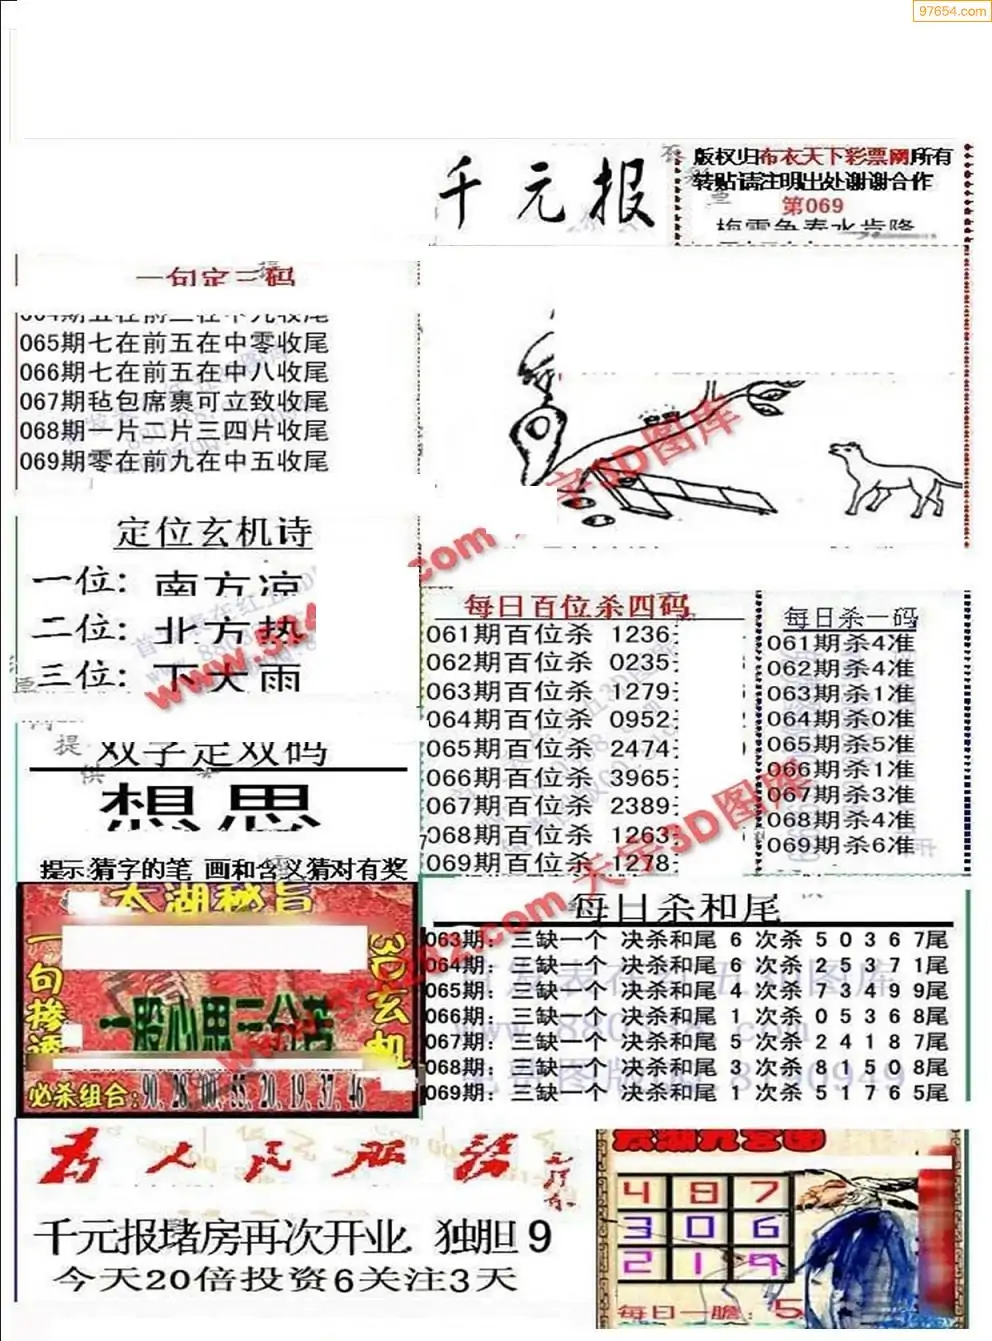 97654.com
千元报
版权归布衣天下彩票网所有
转贴请注明出处谢谢合作
第069
梅雪争春水肯降
一句定三码
065期七在前五在中零收尾
066期七在前五在中八收尾
067期毡包席裹可立致收尾
068期一片二片三四片收尾
069期零在前九在中五收尾
定位玄机诗
一位: 南方凉
二位: 北方热
三位: 下大雨
每日百位杀四码
061期百位杀 1236
062期百位杀 0235
063期百位杀 1279
064期百位杀 0952
065期百位杀 2474
066期百位杀 3965
067期百位杀 2389
068期百位杀 1263
069期百位杀 1278
每日杀一码
061期杀4准
062期杀4准
063期杀1准
064期杀0准
065期杀5准
066期杀1准
067期杀3准
068期杀4准
069期杀6准
提
供
双字定双码
想思
提示:猜字的笔 画和含义猜对有奖
太湖秘旨
一句掺透
3D玄机
一股心思三分苦
必杀组合:90, 28, 00, 55, 20, 19, 37, 46
每日杀和尾
063期: 三缺一个 决杀和尾 6 次杀 5 0 3 6 7尾
064期: 三缺一个 决杀和尾 6 次杀 2 5 3 7 1尾
065期: 三缺一个 决杀和尾 4 次杀 7 3 4 9 9尾
066期: 三缺一个 决杀和尾 1 次杀 0 5 3 6 8尾
067期: 三缺一个 决杀和尾 5 次杀 2 4 1 8 7尾
068期: 三缺一个 决杀和尾 3 次杀 8 1 5 0 8尾
069期: 三缺一个 决杀和尾 1 次杀 5 1 7 6 5尾
为人民服务
毛泽东
千元报堵房再次开业. 独胆 9
今天20倍投资6关注3天
太湖九宫图
4 8 7
3 0 6
2 1 9
每日一胆: 5